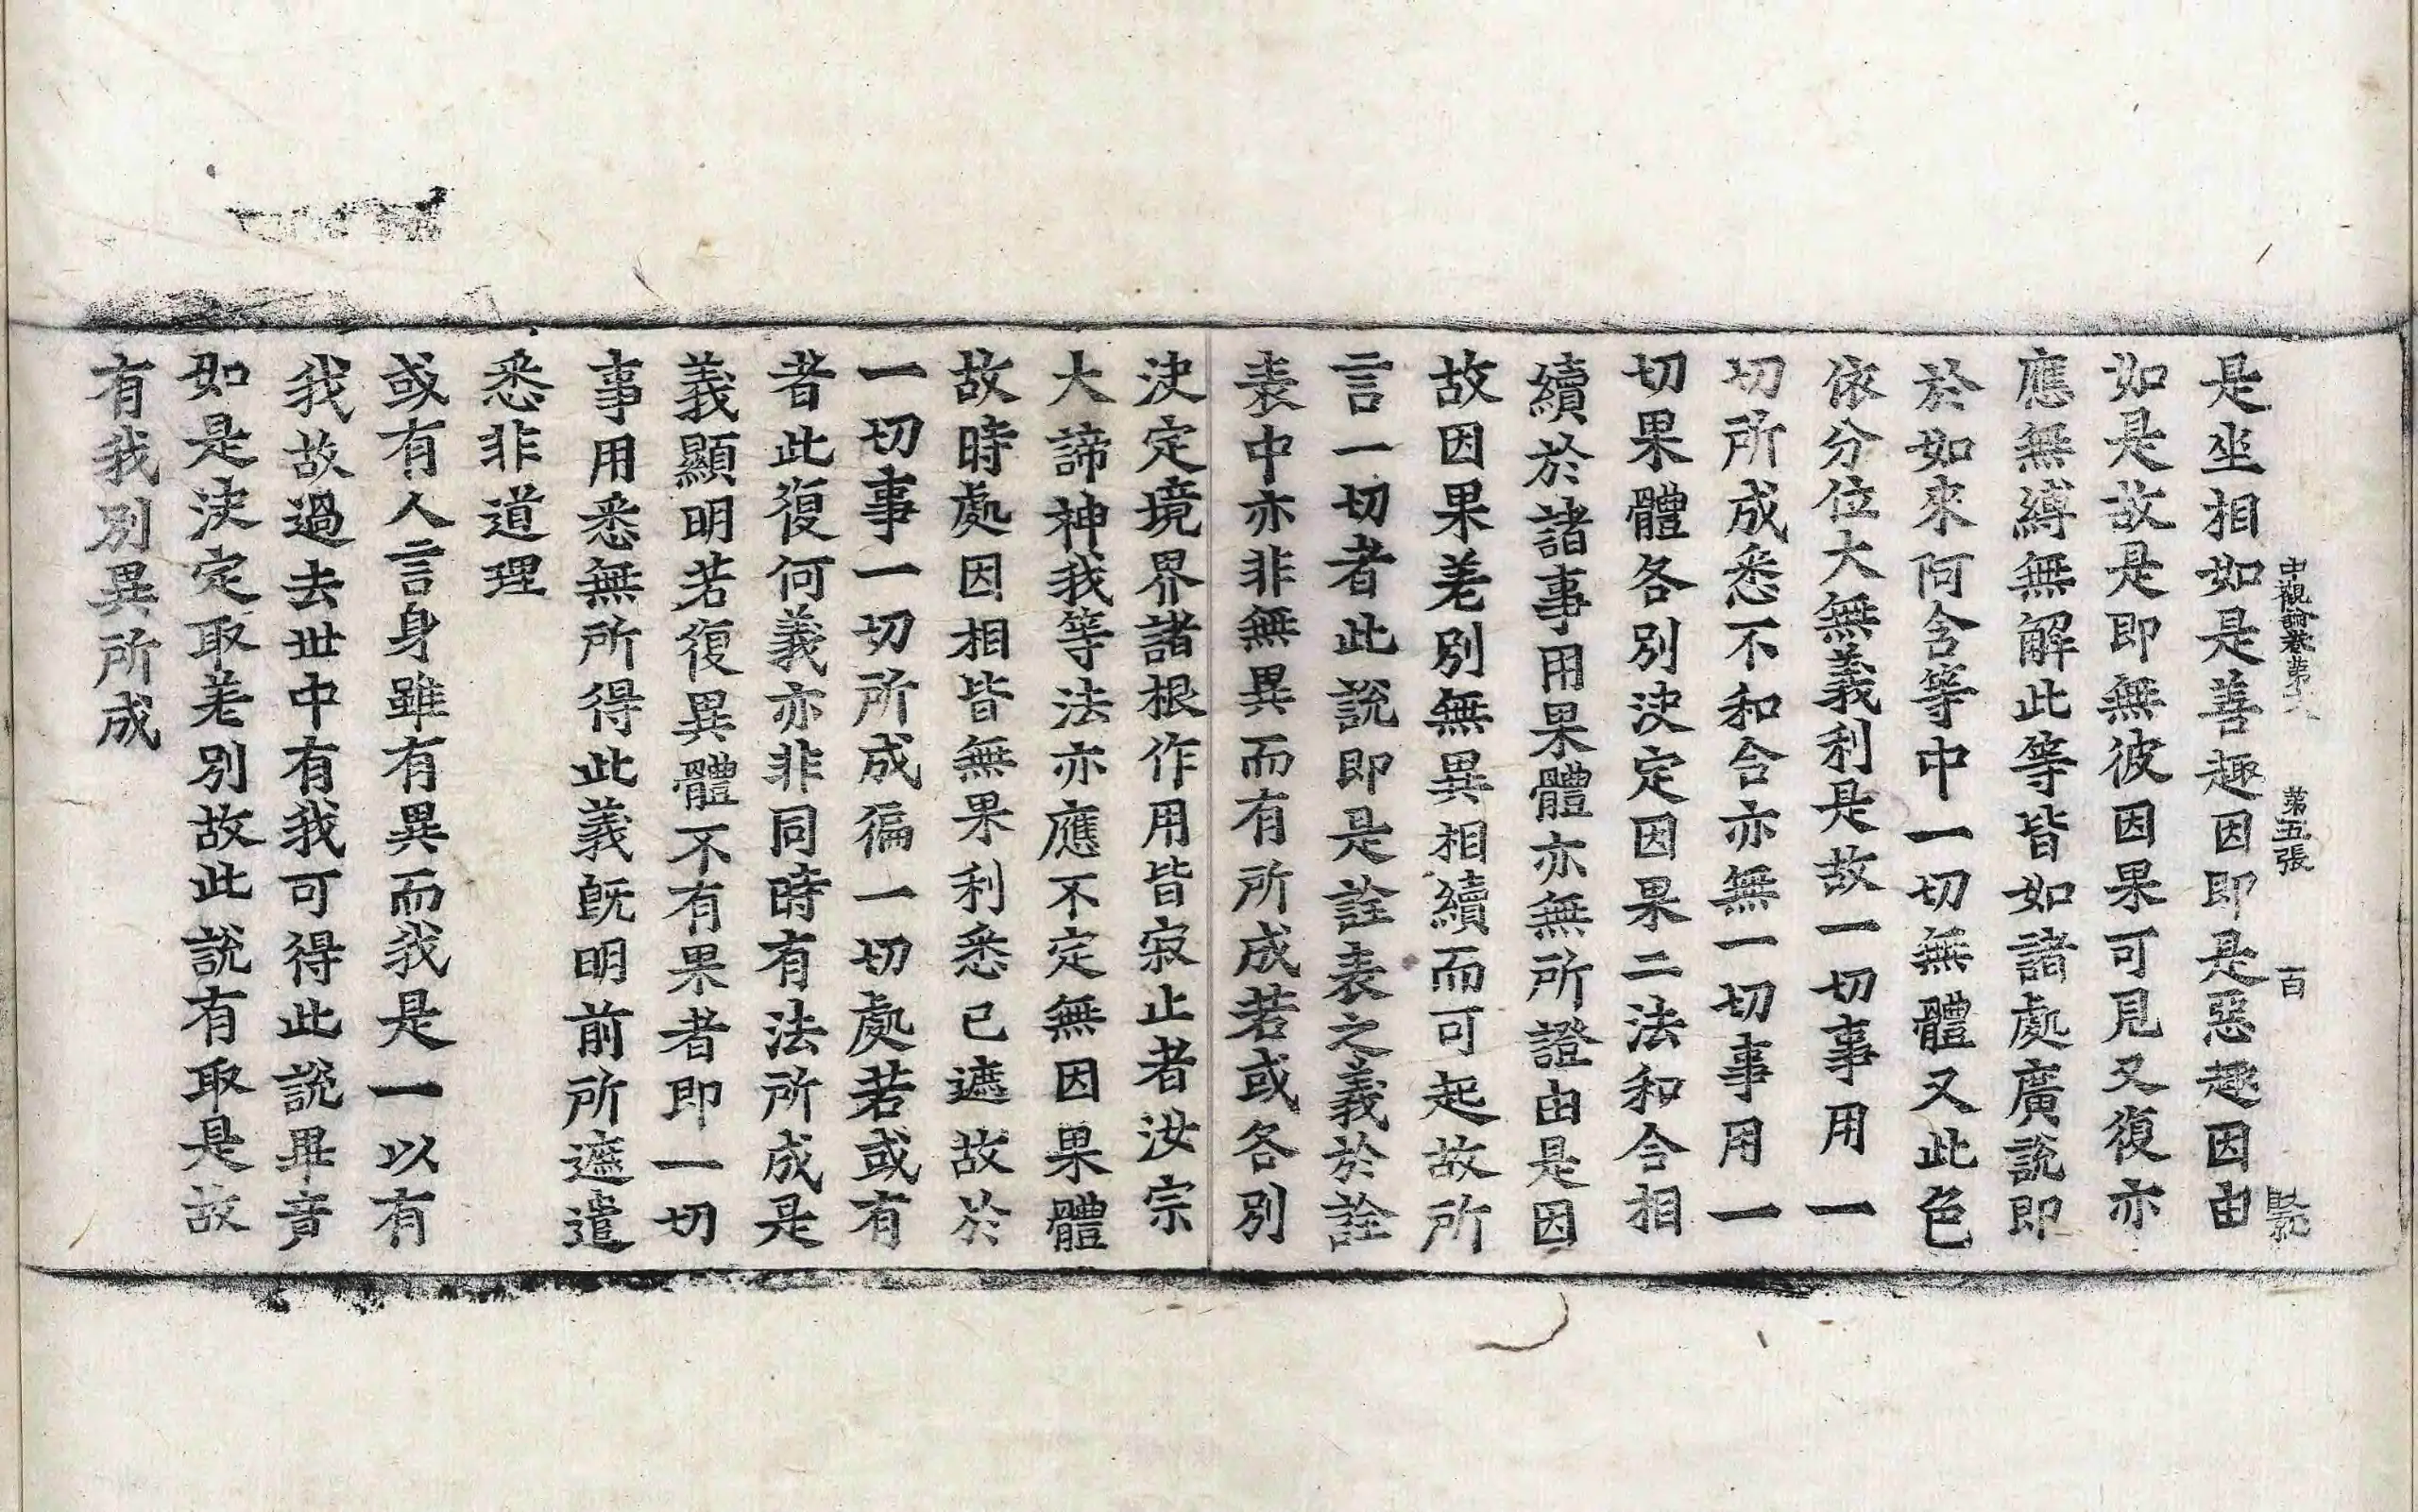 中觀論卷第六 第五張 百
是坐相如是善趣因即是惡趣因由
如是故是即無彼因果可見又復亦
應無縛無解此等皆如諸處廣說即
於如來阿含等中一切無體又此色
依分位大無義利是故一切事用一
切所成悉不和合亦無一切事用一
切果體各別決定因果二法和合相
續於諸事用果體亦無所證由是因
故因果差別無異相續而可起故所
言一切者此說即是詮表之義於詮
表中亦非無異而有所成若或各別
決定境界諸根作用皆寂止者汝宗
大諦神我等法亦應不定無因果體
故時處因相皆無果利悉已遮故於
一切事一切所成徧一切處若或有
者此復何義亦非同時有法所成是
義顯明若復異體不有果者即一切
事用悉無所得此義既明前所遮遣
悉非道理
或有人言身雖有異而我是一以有
我故過去世中有我可得此說畢竟
如是決定取差別故此說有取是故
有我別異所成